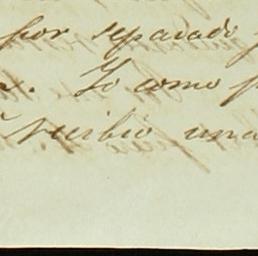 por separado
Yo como
recibió una